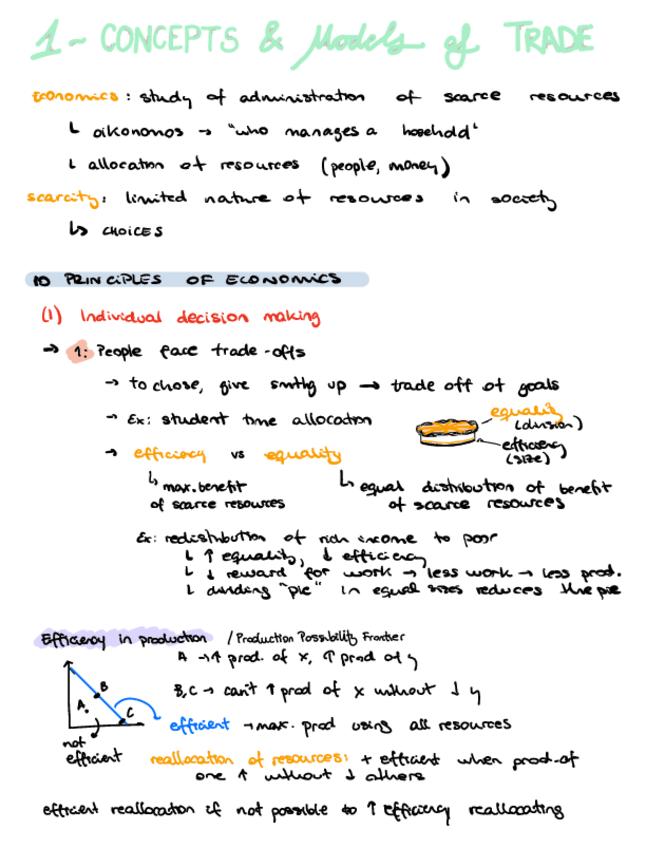 1 - CONCEPTS & Models of TRADE
Economics: study of administration of scarce resources
↳ oikonomos → "who manages a hosehold"
↳ allocation of resources (people, money)
scarcity: limited nature of resources in society
↳ CHOICES
10 PRINCIPLES OF ECONOMICS
(1) Individual decision making
→ 1: People face trade-offs
→ to chose, give smthg up → trade off of goals
→ Ex: student time allocation
equality
(division)
efficiency
(size)
→ efficiency vs equality
↳ max. benefit
of scarce resources
↳ equal distribution of benefit
of scarce resources
Ex: redistribution of rich income to poor
↳ ↑ equality, ↓ efficiency
↳ ↓ reward for work → less work → less prod.
↳ dividing "pie" in equal sizes reduces the pie
Efficiency in production / Production Possibility Frontier
A → ↑ prod. of x, ↑ prod of y
B, C → can't ↑ prod of x without ↓ y
A.
B
C
efficient → max. prod using all resources
not
efficient
reallocation of resources: + efficient when prod. of
one ↑ without ↓ others
efficient reallocation if not possible to ↑ efficiency reallocating